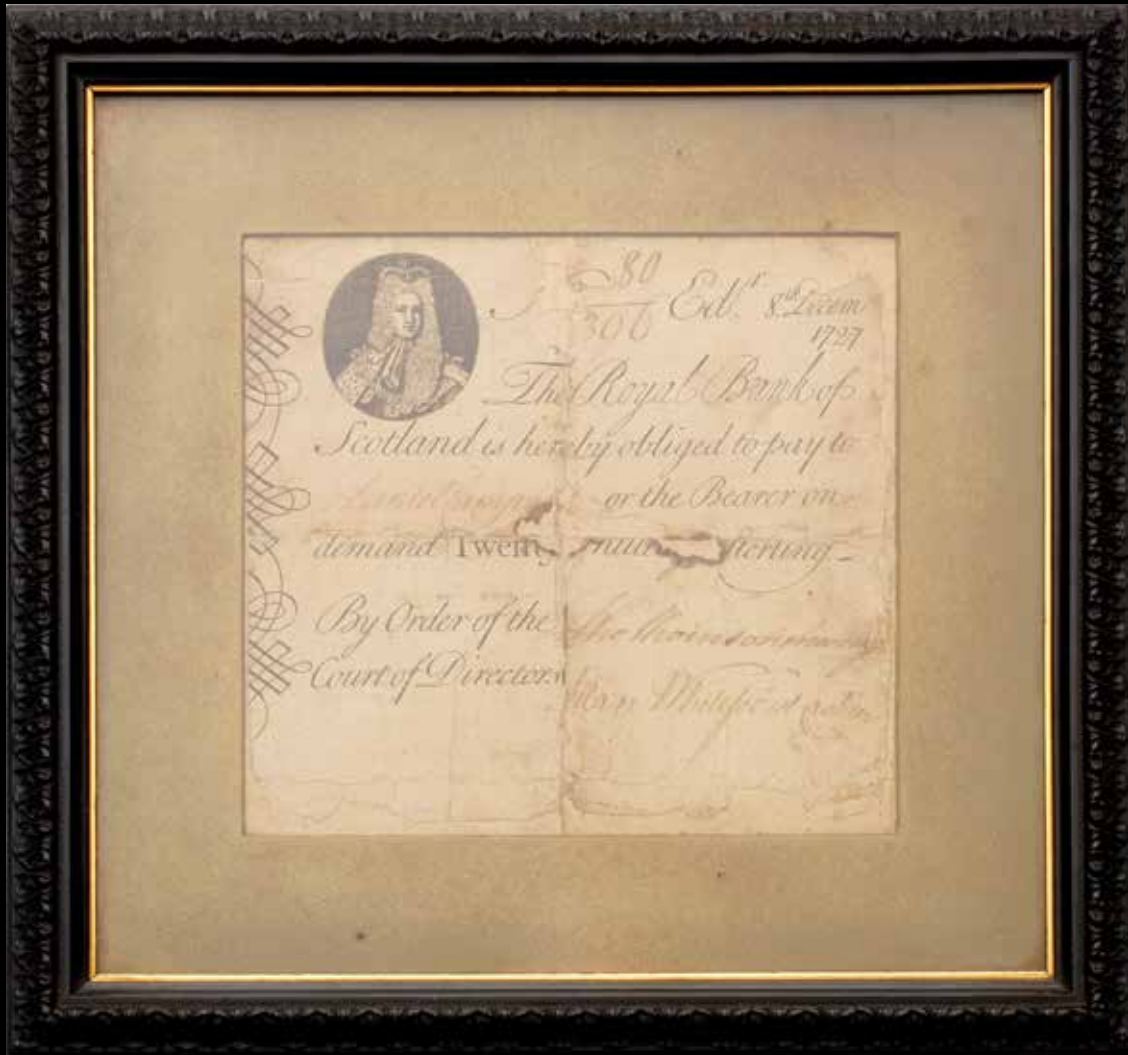 80
306
Edr. 8th Decem
1727
The Royal Bank of
Scotland is hereby obliged to pay to
or the Bearer on
demand Twenty sterling
By Order of the
Court of Directors
Allan Whitefoord